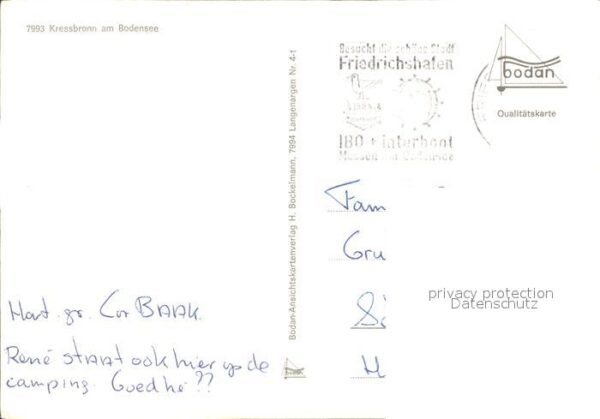 7993 Kressbronn am Bodensee
Besucht die schöne Stadt
Friedrichshafen
IBO + interboot
Messen am Bodensee
bodan
Qualitätskarte
Bodan-Ansichtskartenverlag H. Bockelmann, 7994 Langenargen Nr. 4-1
Fam
Gru
Hart. gr. Cor BAAK.
René STAAT ook hier op de
camping. Goed hé??
privacy protection
Datenschutz